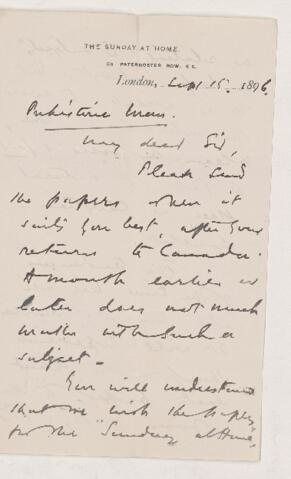 THE SUNDAY AT HOME.
56 PATERNOSTER ROW, E.C.
London, Sept 15. 1896.
Prehistoric Man.
My dear Sir,
Please send
the papers when it
suits you best, after your
return to Canada.
A month earlier or
later does not much
matter with such a
subject.
You will understand
that we wish the papers
for the "Sunday at Home,